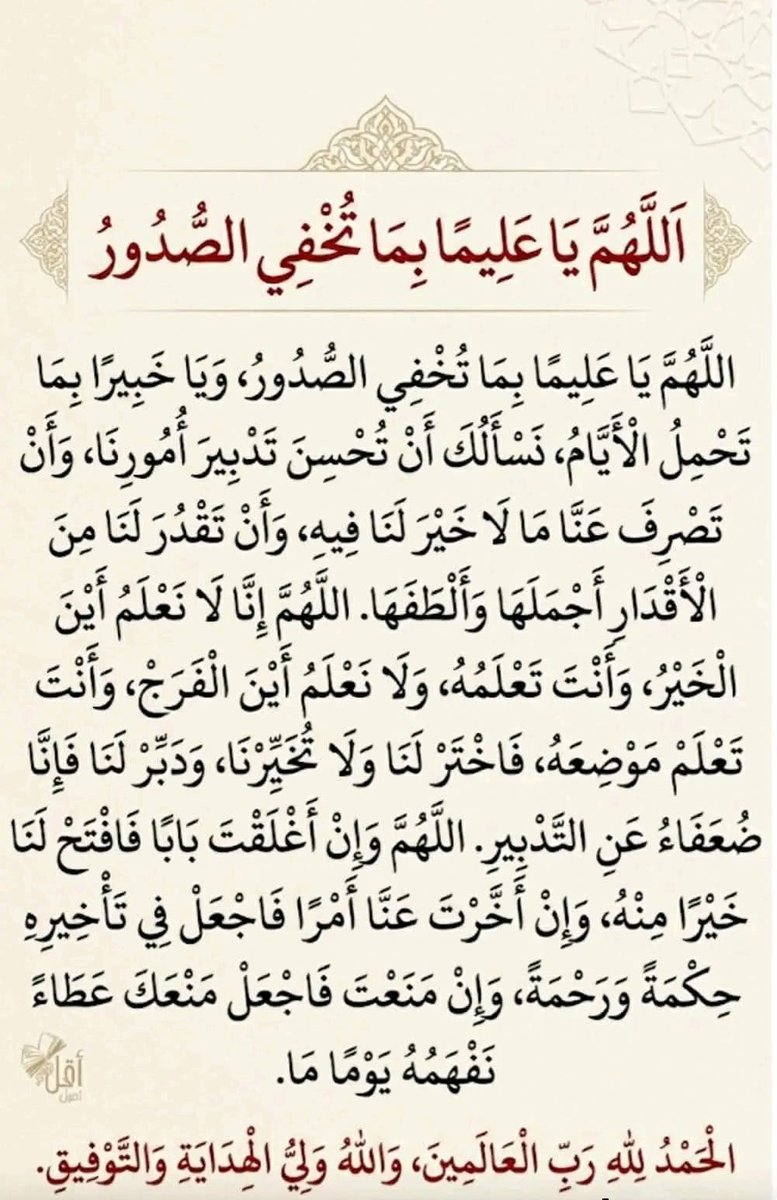 اَللَّهُمَّ يَا عَلِيمًا بِمَا تُخْفِي الصُّدُورُ
اللَّهُمَّ يَا عَلِيمًا بِمَا تُخْفِي الصُّدُورُ، وَيَا خَبِيرًا بِمَا
تَحْمِلُ الْأَيَّامُ، نَسْأَلُكَ أَنْ تُحْسِنَ تَدْبِيرَ أُمُورِنَا، وَأَنْ
تَصْرِفَ عَنَّا مَا لَا خَيْرَ لَنَا فِيهِ، وَأَنْ تَقْدُرَ لَنَا مِنَ
الْأَقْدَارِ أَجْمَلَهَا وَأَلْطَفَهَا. اللَّهُمَّ إِنَّا لَا نَعْلَمُ أَيْنَ
الْخَيْرُ، وَأَنْتَ تَعْلَمُهُ، وَلَا نَعْلَمُ أَيْنَ الْفَرَجْ، وَأَنْتَ
تَعْلَمْ مَوْضِعَهُ، فَاخْتَرْ لَنَا وَلَا تُخَيِّرْنَا، وَدَبِّرْ لَنَا فَإِنَّا
ضُعَفَاءُ عَنِ التَّدْبِيرِ. اللَّهُمَّ وَإِنْ أَغْلَقْتَ بَابًا فَافْتَحْ لَنَا
خَيْرًا مِنْهُ، وَإِنْ أَخَّرْتَ عَنَّا أَمْرًا فَاجْعَلْ فِي تَأْخِيرِهِ
حِكْمَةً وَرَحْمَةً، وَإِنْ مَنَعْتَ فَاجْعَلْ مَنْعَكَ عَطَاءً
نَفْهَمُهُ يَوْمًا مَا.
الْحَمْدُ لِلهِ رَبِّ الْعَالَمِينَ، وَاللهُ وَلِيُّ الْهِدَايَةِ وَالتَّوْفِيقِ.